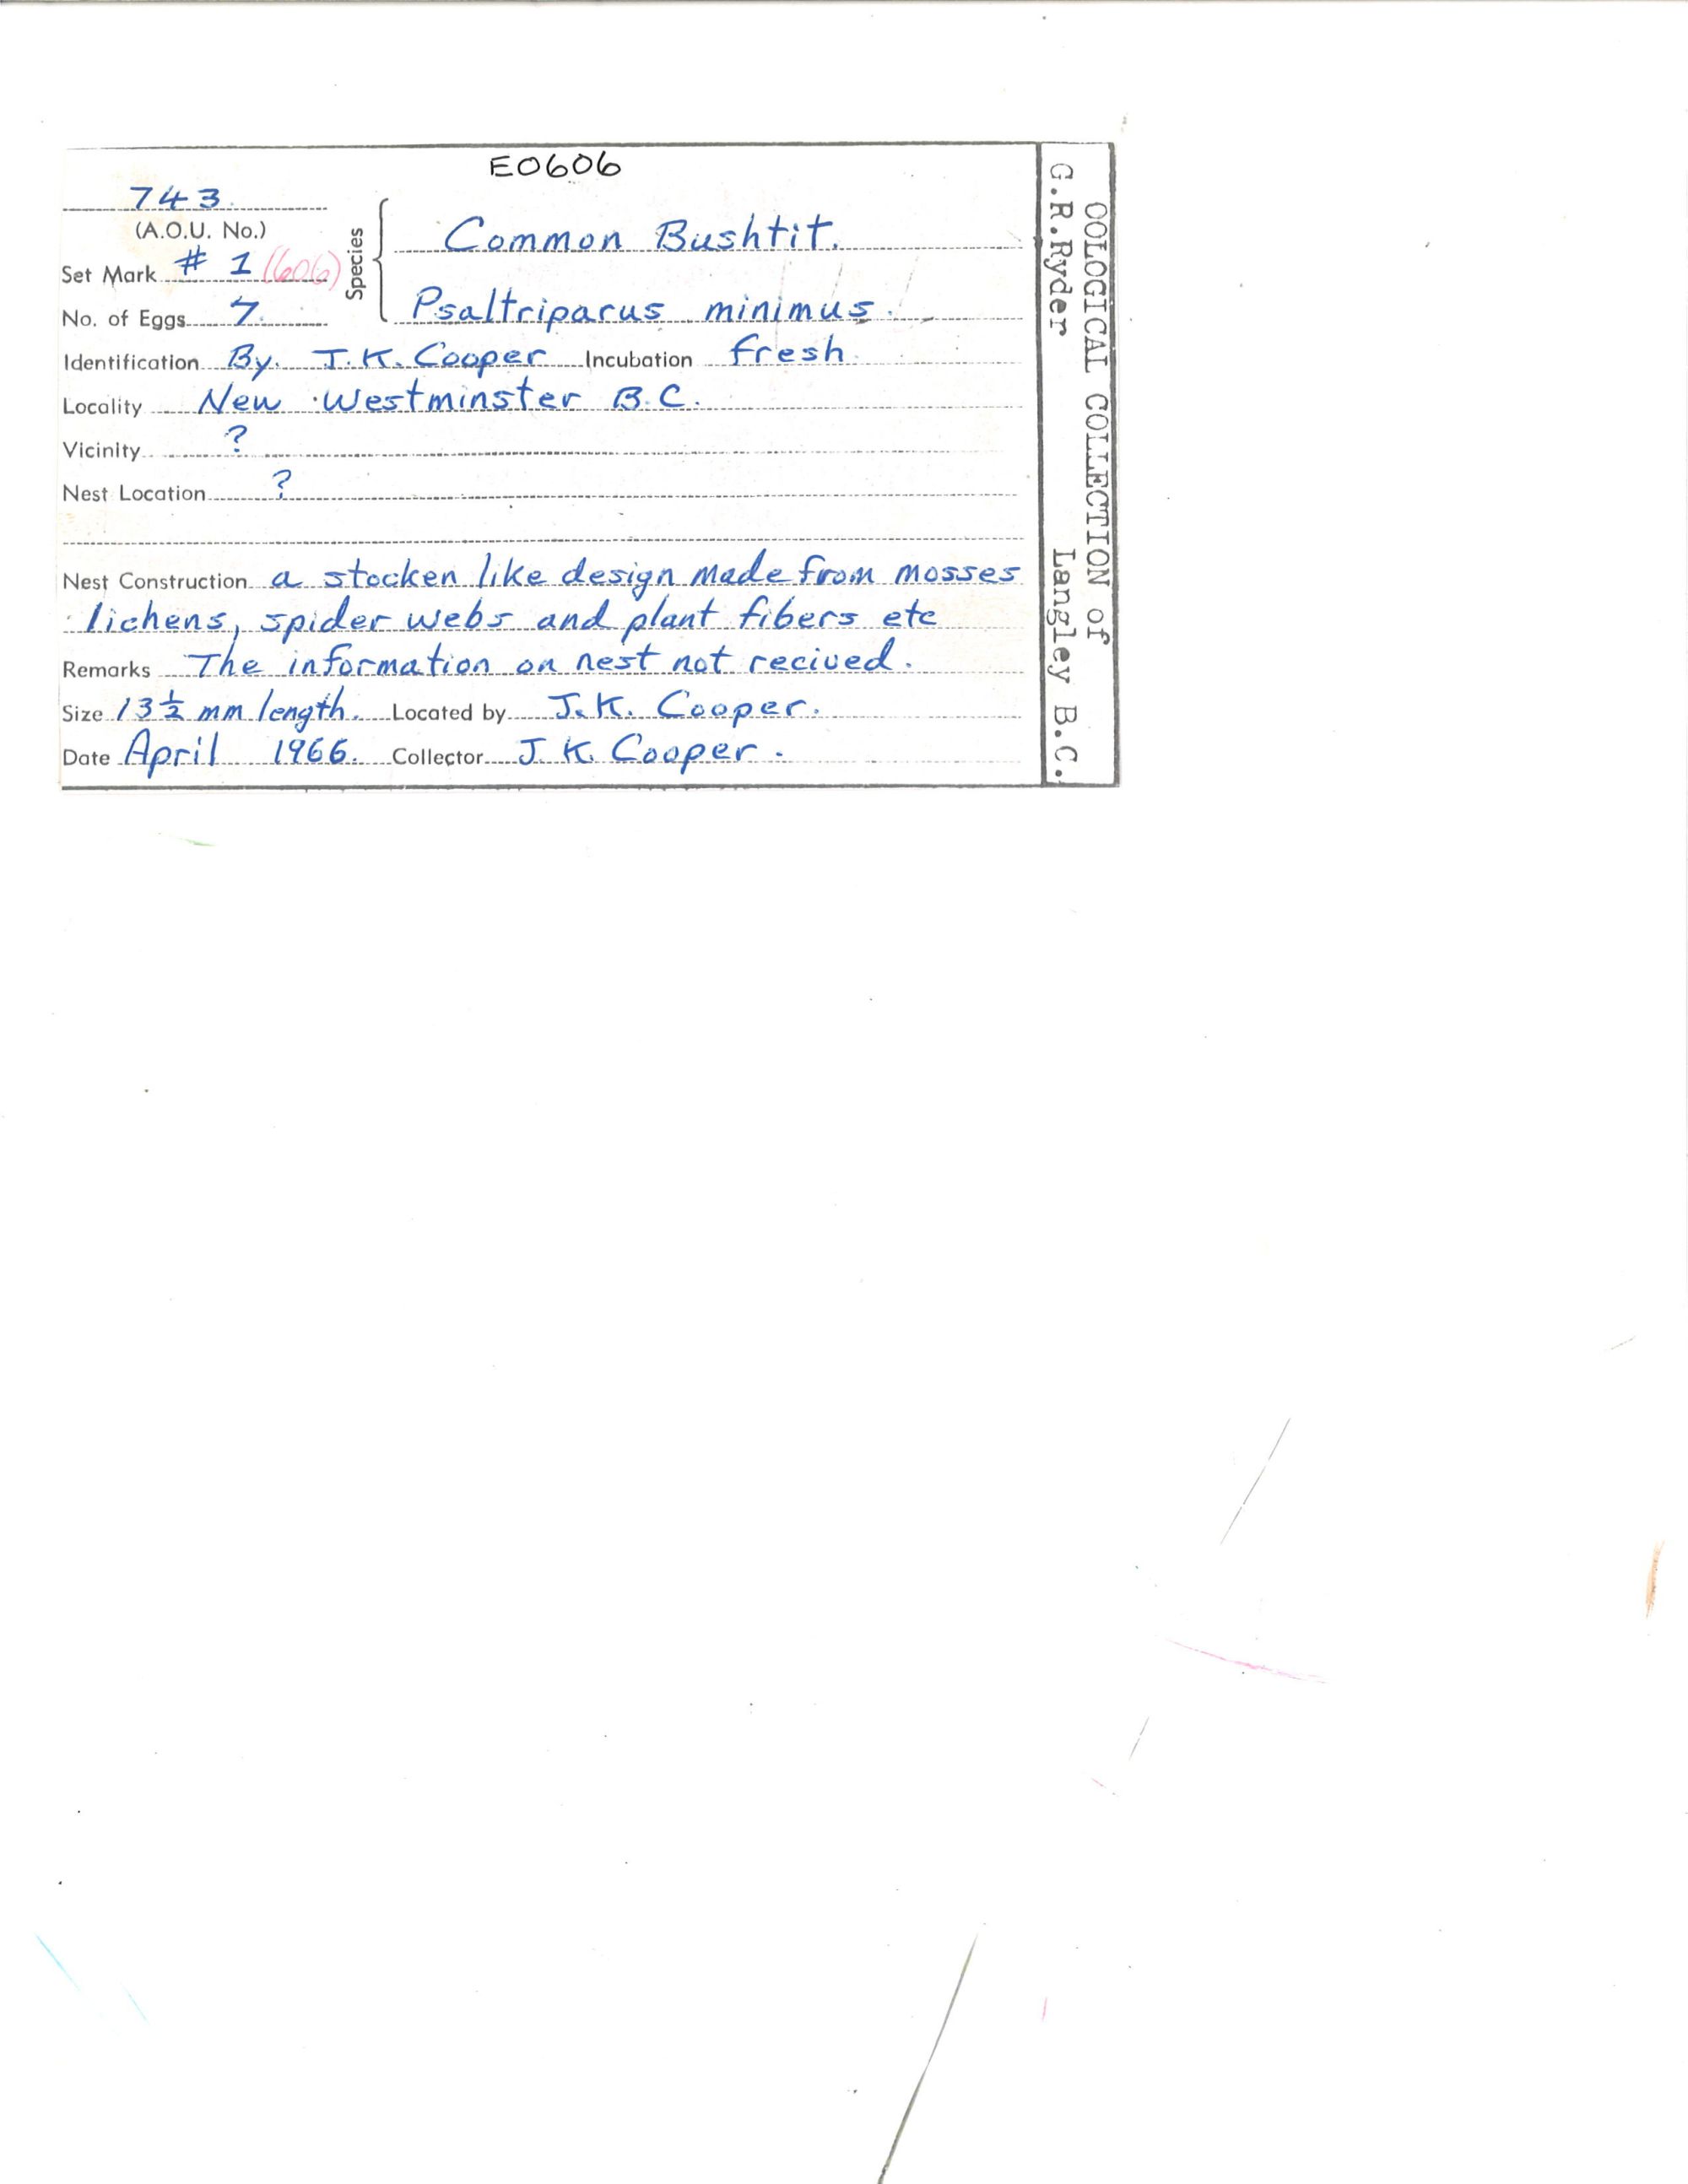 E0606
743.
(A.O.U. No.)
Set Mark # 1 (606)
No. of Eggs 7.
Species
Common Bushtit.
Psaltriparus minimus.
Identification By. J.K. Cooper Incubation fresh
Locality New Westminster B.C.
Vicinity ?
Nest Location ?
Nest Construction a stocken like design made from mosses
lichens, spider webs and plant fibers etc
Remarks The information on nest not recived.
Size 13 ½ mm length. Located by J.K. Cooper.
Date April 1966. Collector J.K. Cooper.
OOLOGICAL COLLECTION of
G.R.Ryder Langley B.C.